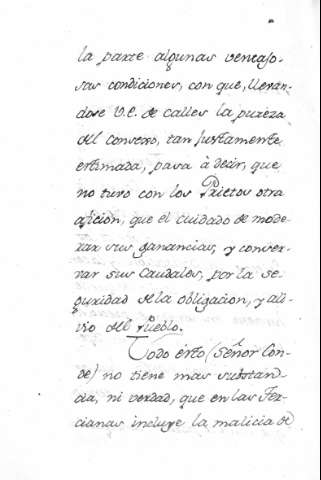 la parte algunas ventajo-
sas condiciones, con que, lleван-
dose V.E. de calles la pureza
del consexo, tan justamente
estimada, pasa à decir, que
no tuvo con los Prietos otra
aficion, que el cuidado de mode-
rar sus ganancias, y conser-
var sus Caudales, por la se-
guridad de la obligacion, y ali-
vio del Pueblo.
Todo ésto (Señor Con-
de) no tiene mas substan-
cia, ni verdad, que en las Ter-
cianas incluye la malicia de